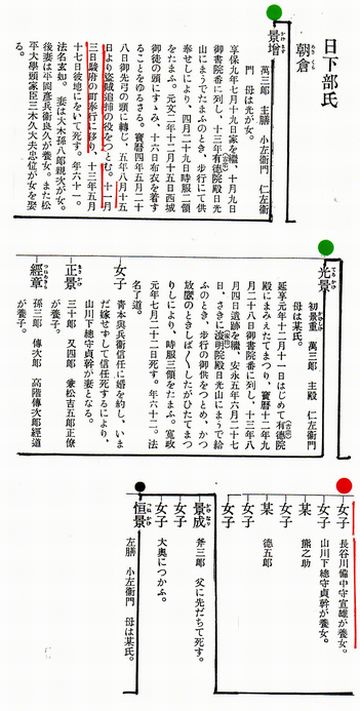 日下部氏
朝倉
あさくら
景增
かげます
萬三郎　主膳　小左衞門　仁左衞
門　母は光が女。
享保九年七月十九日家を繼、十月九日
御書院番に列し、十三年有德院殿日光
山にまうでたまふのとき、步行にて供
奉せしにより、四月二十九日時服二領
をたまふ。元文二年十二月十五日西城
御徒の頭にすゝみ、布衣を着す
ることをゆるさる。寶曆四年五月二十
八日御先弓の頭に轉じ、五年八月十五
日より盜賊追捕の役をつとむ。十一月
三日駿府の町奉行に移り、十三年五月
十七日彼地にをいて死す。年六十一。
法名玄如。　妻は大木孫八郎親次が女。
後妻は平岡彥兵衞良久が養女。また松
平大學頭家臣三木久大夫忠位が女を娶
る。
光景
てるかげ
初景重　萬三郎　主殿　仁左衞門
母は某氏。
延享元年十二月十一日はじめて有德院
殿にまみえたてまつり、寶曆十二年九
月二十八日御書院番に列し、十三年八
月四日遺跡を繼、安永五年六月二十七
日、さきに浚明院殿日光山にまうで給
ふのとき、步行の御供をつとめ、かつ
放鷹のときしば〳〵したがひたてまつ
りしにより、時服三領をたまふ。寬政
元年七月二十二日死す。年六十二。法
名了道。
女子
青木與兵衞信任に婚を約し、いま
だ嫁せずして信任死するにより、
山川下總守貞幹が妻となる。
正景
まさかげ
三十郎　又四郎　兼松吉五郎正僚
が養子。
經章
つねあきら
孫三郎　傳次郎　高階傳次郎經道
が養子。
女子　長谷川備中守宣雄が養女。
女子　山川下總守貞幹が養女。
某　熊之助
女子
某　德五郎
女子
女子
景成
かげなり
斧三郎　父に先だちて死す。
女子
女子　大奧につかふ。
恒景
つねかげ
左膳　小左衞門　母は某氏。